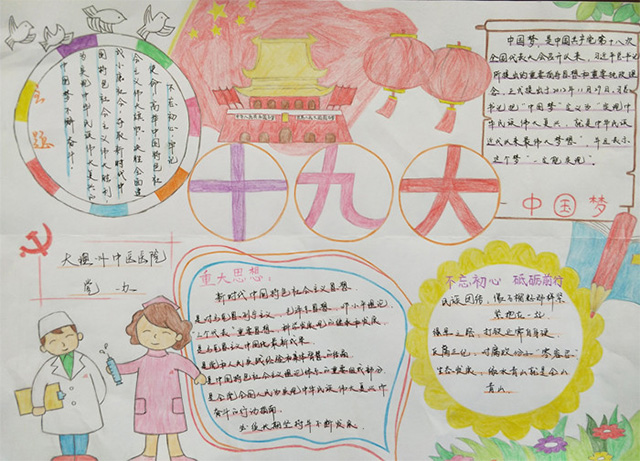 主题
不忘初心,牢记
使命,高举中国特色社
会主义伟大旗帜,决胜全面建
成小康社会,夺取新时代中
国特色社会主义伟大胜利,
为实现中华民族伟大复兴的
中国梦不懈奋斗。
十九大
中国梦,是中国共产党第十八次
全国代表大会召开以来,习近平总书记
所提出的重要指导思想和重要执政理
念,正式提出于2012年11月29日。习总
书记把“中国梦”定义为“实现中
华民族伟大复兴,就是中华民族
近代以来最伟大梦想”,并且表示
这个梦“一定能实现”。
中国梦
大理州中医医院
重大思想:
新时代中国特色社会主义思想,
是对马克思列宁主义、毛泽东思想、邓小平理论、
“三个代表”重要思想、科学发展观的继承和发展,
是马克思主义中国化最新成果,
是党和人民实践经验和集体智慧的结晶,
是中国特色社会主义理论体系的重要组成部分,
是全党全国人民为实现中华民族伟大复兴而
奋斗的行动指南,
必须长期坚持并不断发展。
不忘初心 砥砺前行
民族团结,像石榴籽那样紧
紧抱在一起
生态发展,绿水青山就是金山